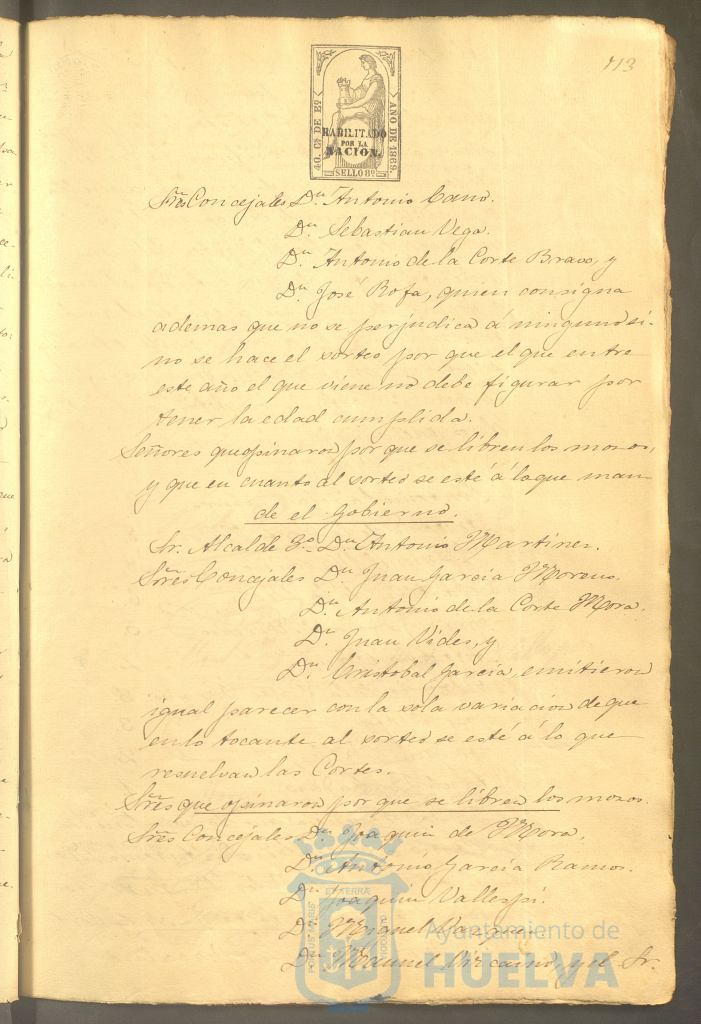 113
40. Cs DE Eº
AÑO DE 1869.
HABILITADO
POR LA
NACION.
SELLO 8º
Sres. Concejales Dn. Antonio Cano.
Dn. Sebastian Vega.
Dn. Antonio de la Corte Bravo, y
Dn. José Rofa, quien consigna
ademas que no se perjudica á ninguno si-
no se hace el sorteo por que el que entre
este año el que viene no debe figurar por
tener la edad cumplida.
Señores que opinaron por que se libren los mozos,
y que en cuanto al sorteo se esté á lo que man-
de el Gobierno.
Sr. Alcalde 3º Dn. Antonio Martinez.
Sres. Concejales Dn. Juan Garcia Moreno.
Dn. Antonio de la Corte Mora.
Dn. Juan Vides, y
Dn. Cristobal Garcia, emitieron
igual parecer con la sola variacion de que
en lo tocante al sorteo se esté á lo que
resuelvan las Cortes.
Sres. que opinaron por que se libren los mozos.
Sres. Concejales Dn. Joaquin de Mora,
Dn. Antonio Garcia Ramos.
Dn. Joaquin Vallespi.
Dn. Miguel
Dn. Manuel Vizcaino, y el Sr.
Ayuntamiento de
HUELVA